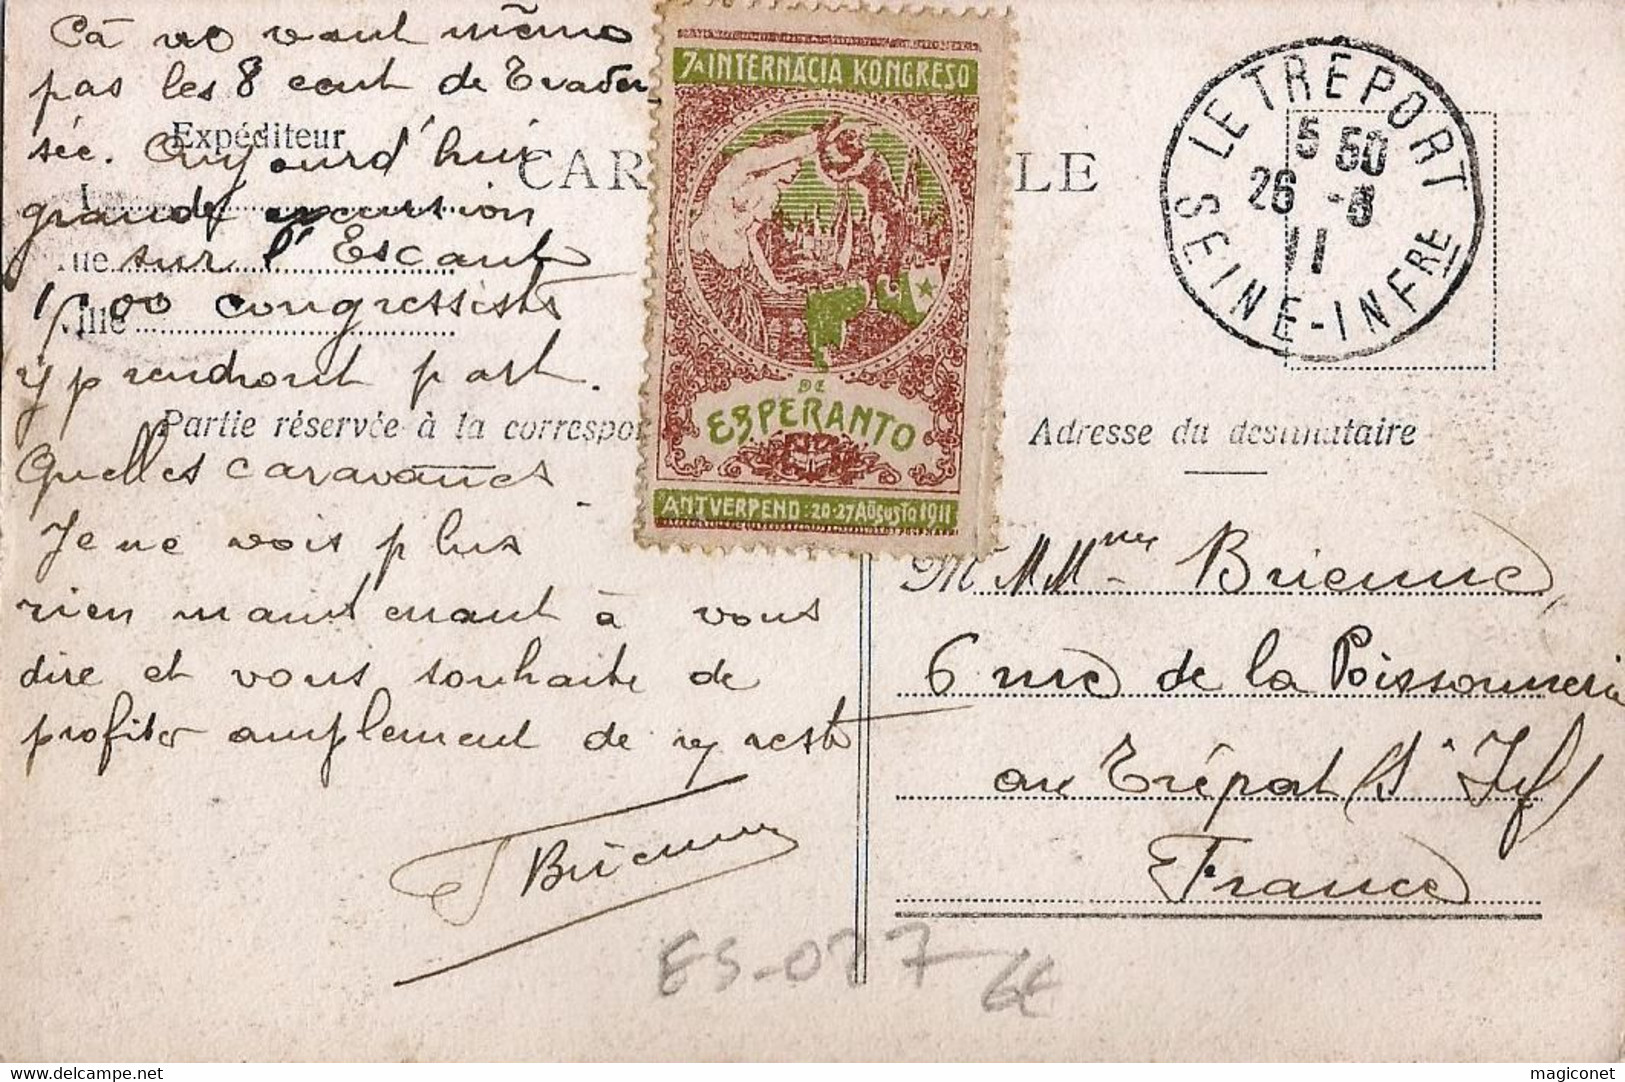 Cà ne vaut même
pas les 8 cent de traver-
sée. Aujourd'hui
grande excursion
sur l'Escaut
congressistes
y prendront part.
Quelles caravanes
Je ne vois plus
rien maintenant à vous
dire et vous souhaite de
profiter amplement de reste
Brienne
Expéditeur
Rue
Ville
CAR
LE
Partie réservée à la correspo
7A INTERNACIA KONGRESO
DE
ESPERANTO
ANTVERPENO: 20-27 AŬGUSTO 1911
LE TREPORT
5 50
26 -8
11
SEINE-INFRE
Adresse du destinataire
M MMmes Brienne
6 rue de la Poissonnerie
au Tréport (Se Infre)
France
ES-027
6€
magiconet